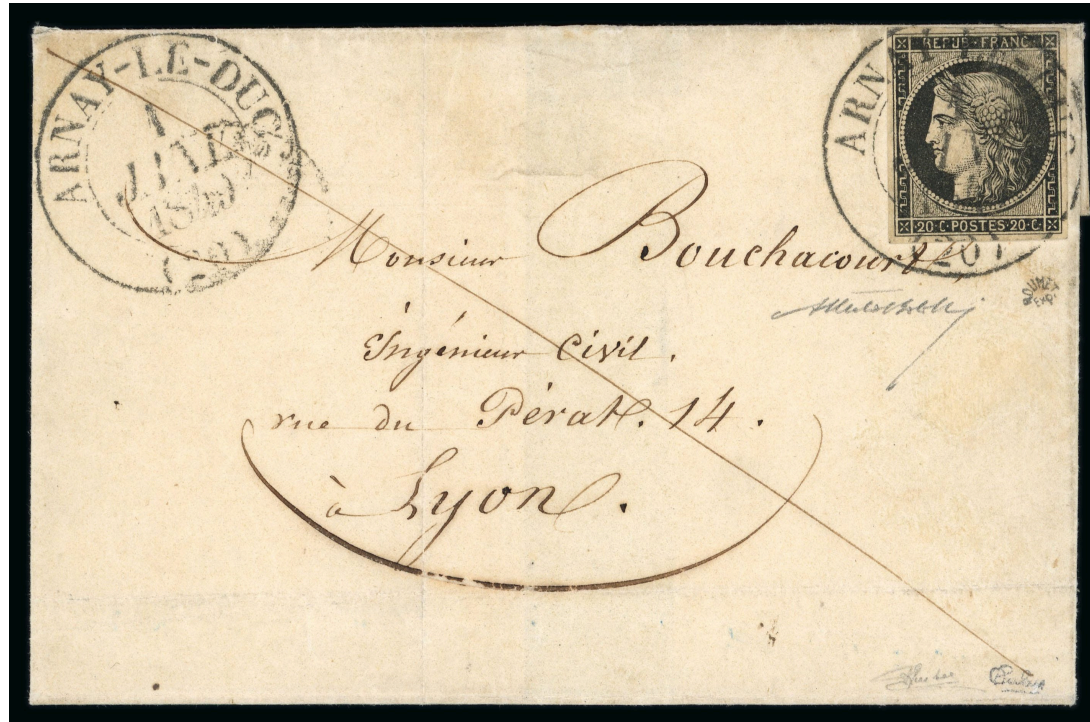 ARNAY-LE-DUC
1
JANV.
1849
(20)
REPUB. FRANC.
20.C. POSTES 20.C.
ARN
(20)
Monsieur Bouchacourt,
Ingénieur Civil.
rue du Pérat. 14.
à Lyon.